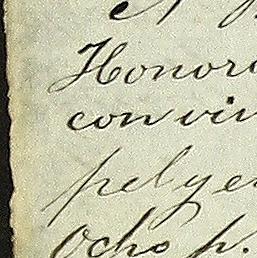 Honor
con vin
pelye
Ocho p.